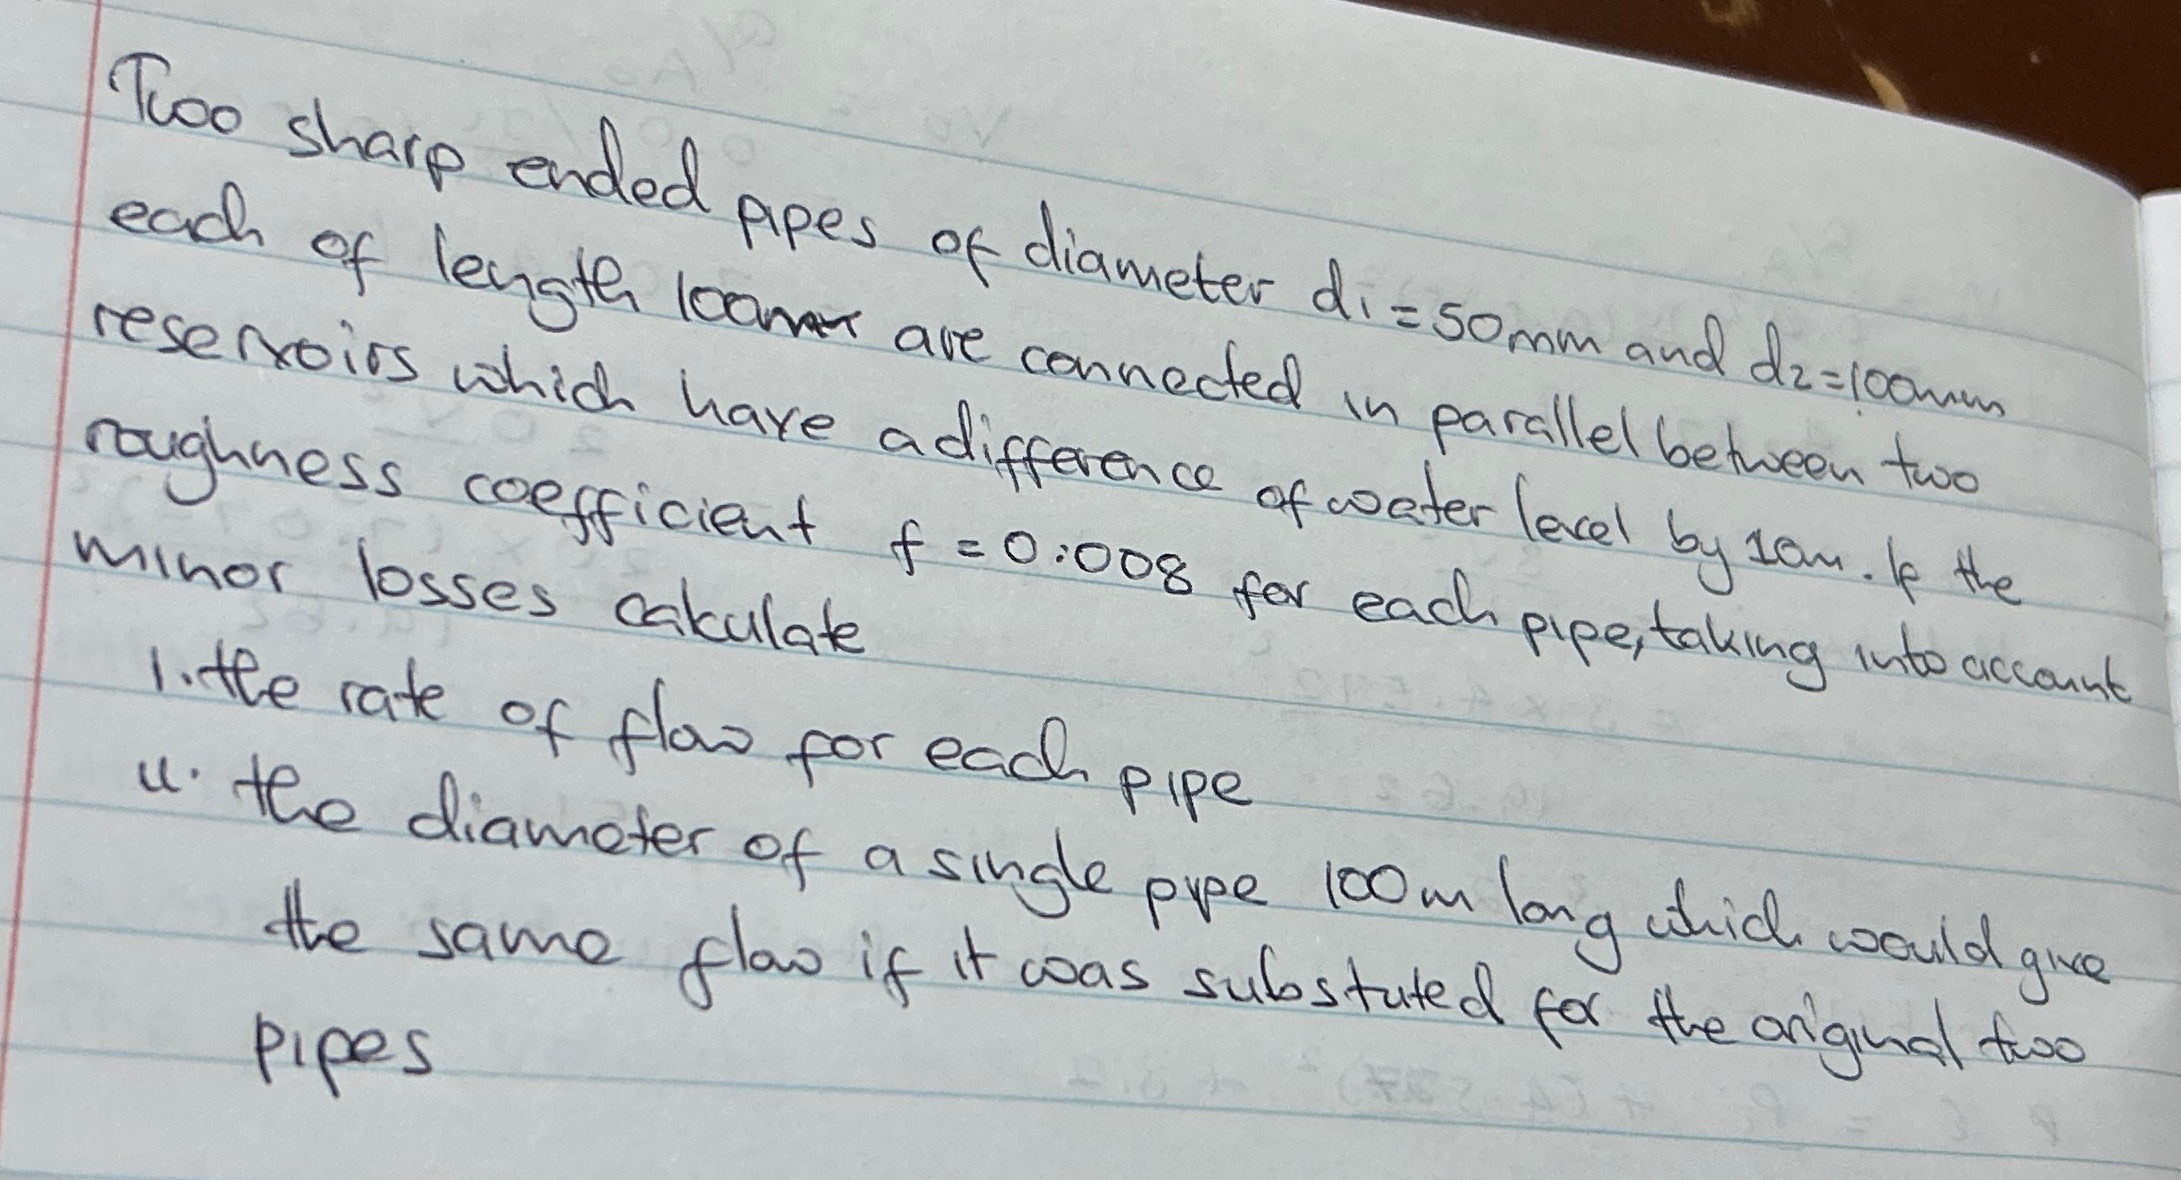 Two sharp ended pipes of diameter d1 = 50mm and d2 = 100mm
each of length 100m are connected in parallel between two
reservoirs which have a difference of water level by 10m. If the
roughness coefficient f = 0.008 for each pipe, taking into account
minor losses calculate
i. the rate of flow for each pipe
ii. the diameter of a single pipe 100m long which would give
the same flow if it was substuted for the original two
pipes